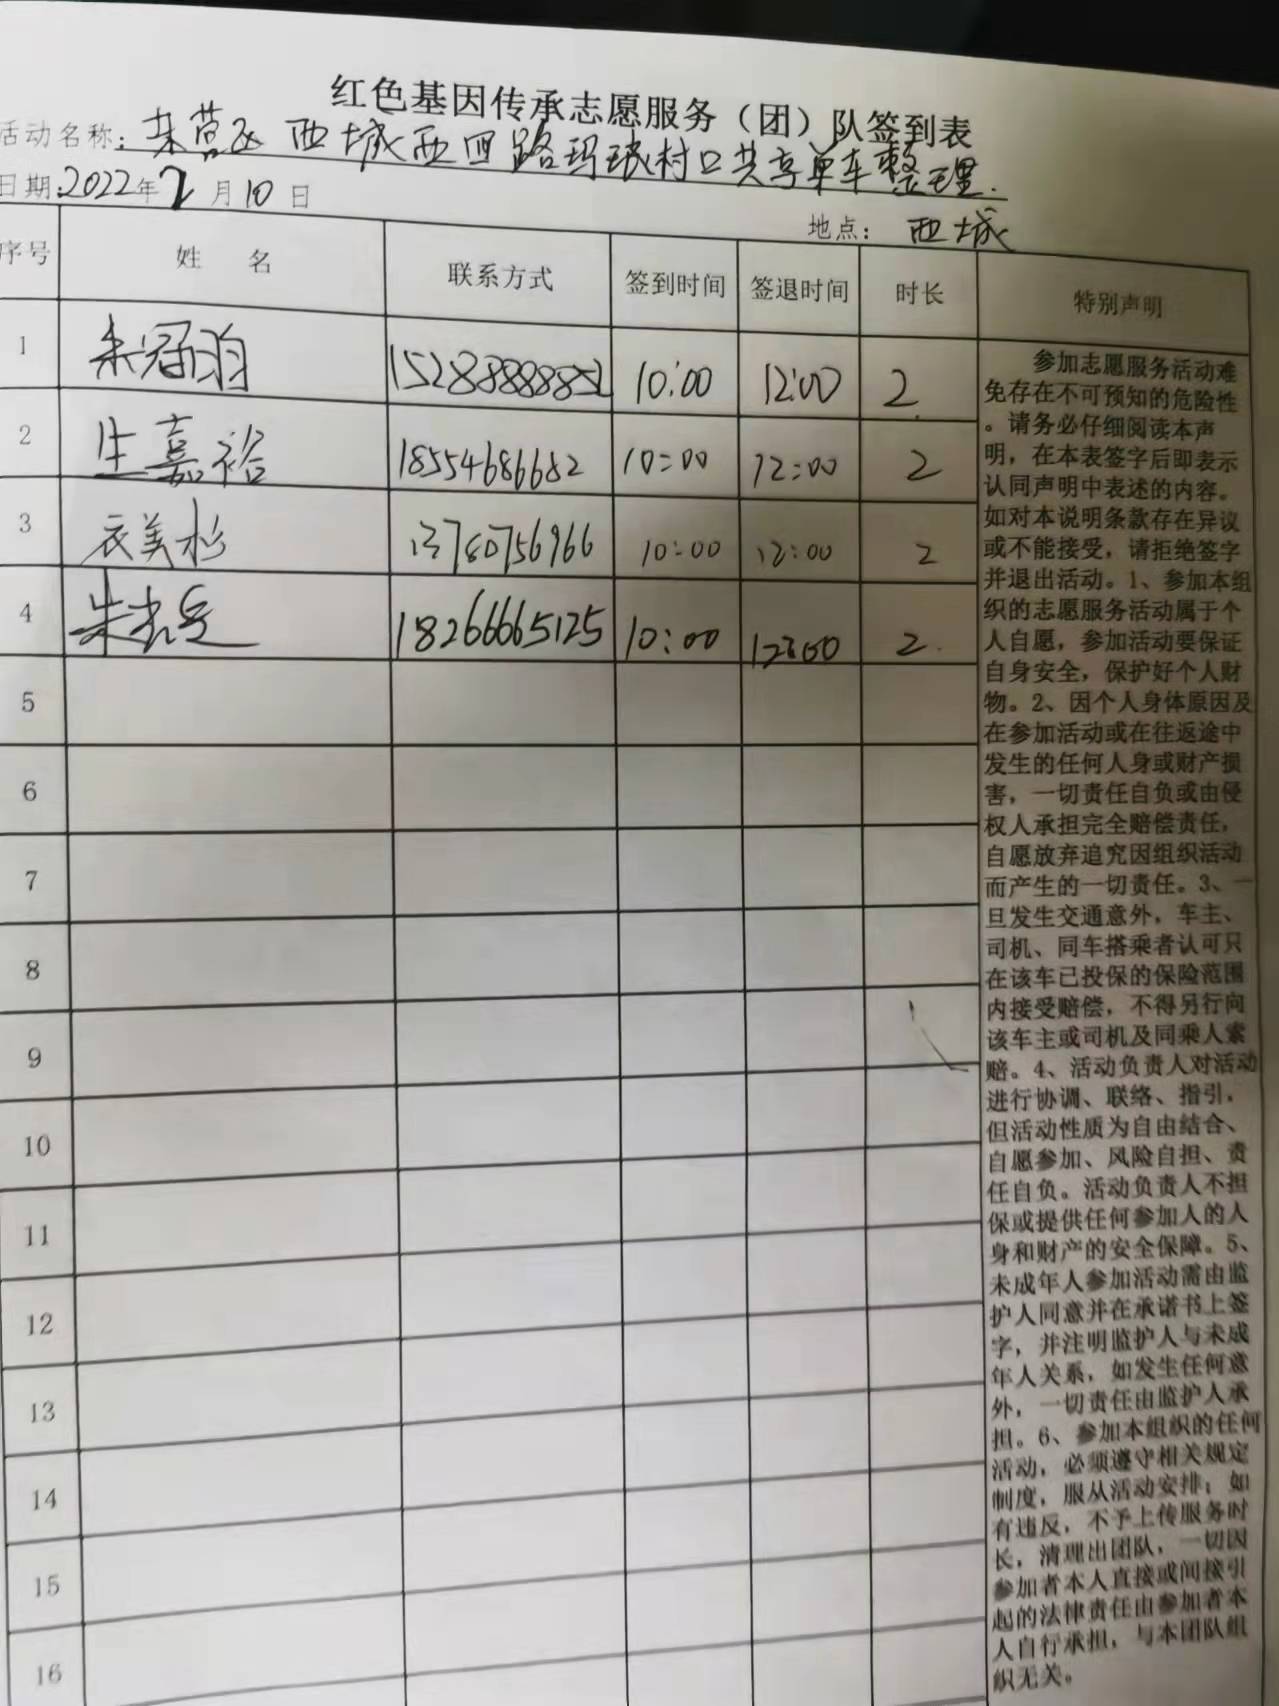 红色基因传承志愿服务（团）队签到表
活动名称：莱芜区西城西四路玛琅村口共享单车整理.
日期:2022年2月10日
地点：西城
序号 姓名 联系方式 签到时间 签退时间 时长 特别声明
1 朱冠羽 15288888852 10:00 12:00 2
2 生嘉裕 18554686682 10:00 12:00 2
3 衣美杉 13780756966 10:00 12:00 2
4 朱 18266665125 10:00 12:00 2
5
6
7
8
9
10
11
12
13
14
15
16
参加志愿服务活动难
免存在不可预知的危险性
。请务必仔细阅读本声
明，在本表签字后即表示
认同声明中表述的内容。
如对本说明条款存在异议
或不能接受，请拒绝签字
并退出活动。1、参加本组
织的志愿服务活动属于个
人自愿，参加活动要保证
自身安全，保护好个人财
物。2、因个人身体原因及
在参加活动或在往返途中
发生的任何人身或财产损
害，一切责任自负或由侵
权人承担完全赔偿责任，
自愿放弃追究因组织活动
而产生的一切责任。3、一
旦发生交通意外，车主、
司机、同车搭乘者认可只
在该车已投保的保险范围
内接受赔偿，不得另行向
该车主或司机及同乘人索
赔。4、活动负责人对活动
进行协调、联络、指引，
但活动性质为自由结合、
自愿参加、风险自担、责
任自负。活动负责人不担
保或提供任何参加人的人
身和财产的安全保障。5、
未成年人参加活动需由监
护人同意并在承诺书上签
字，并注明监护人与未成
年人关系，如发生任何意
外，一切责任由监护人承
担。6、参加本组织的任何
活动，必须遵守相关规定
制度，服从活动安排；如
有违反，不予上传服务时
长，清理出团队，一切因
参加者本人直接或间接引
起的法律责任由参加者本
人自行承担，与本团队组
织无关。